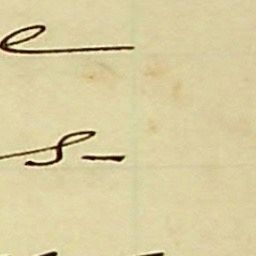 e
s-